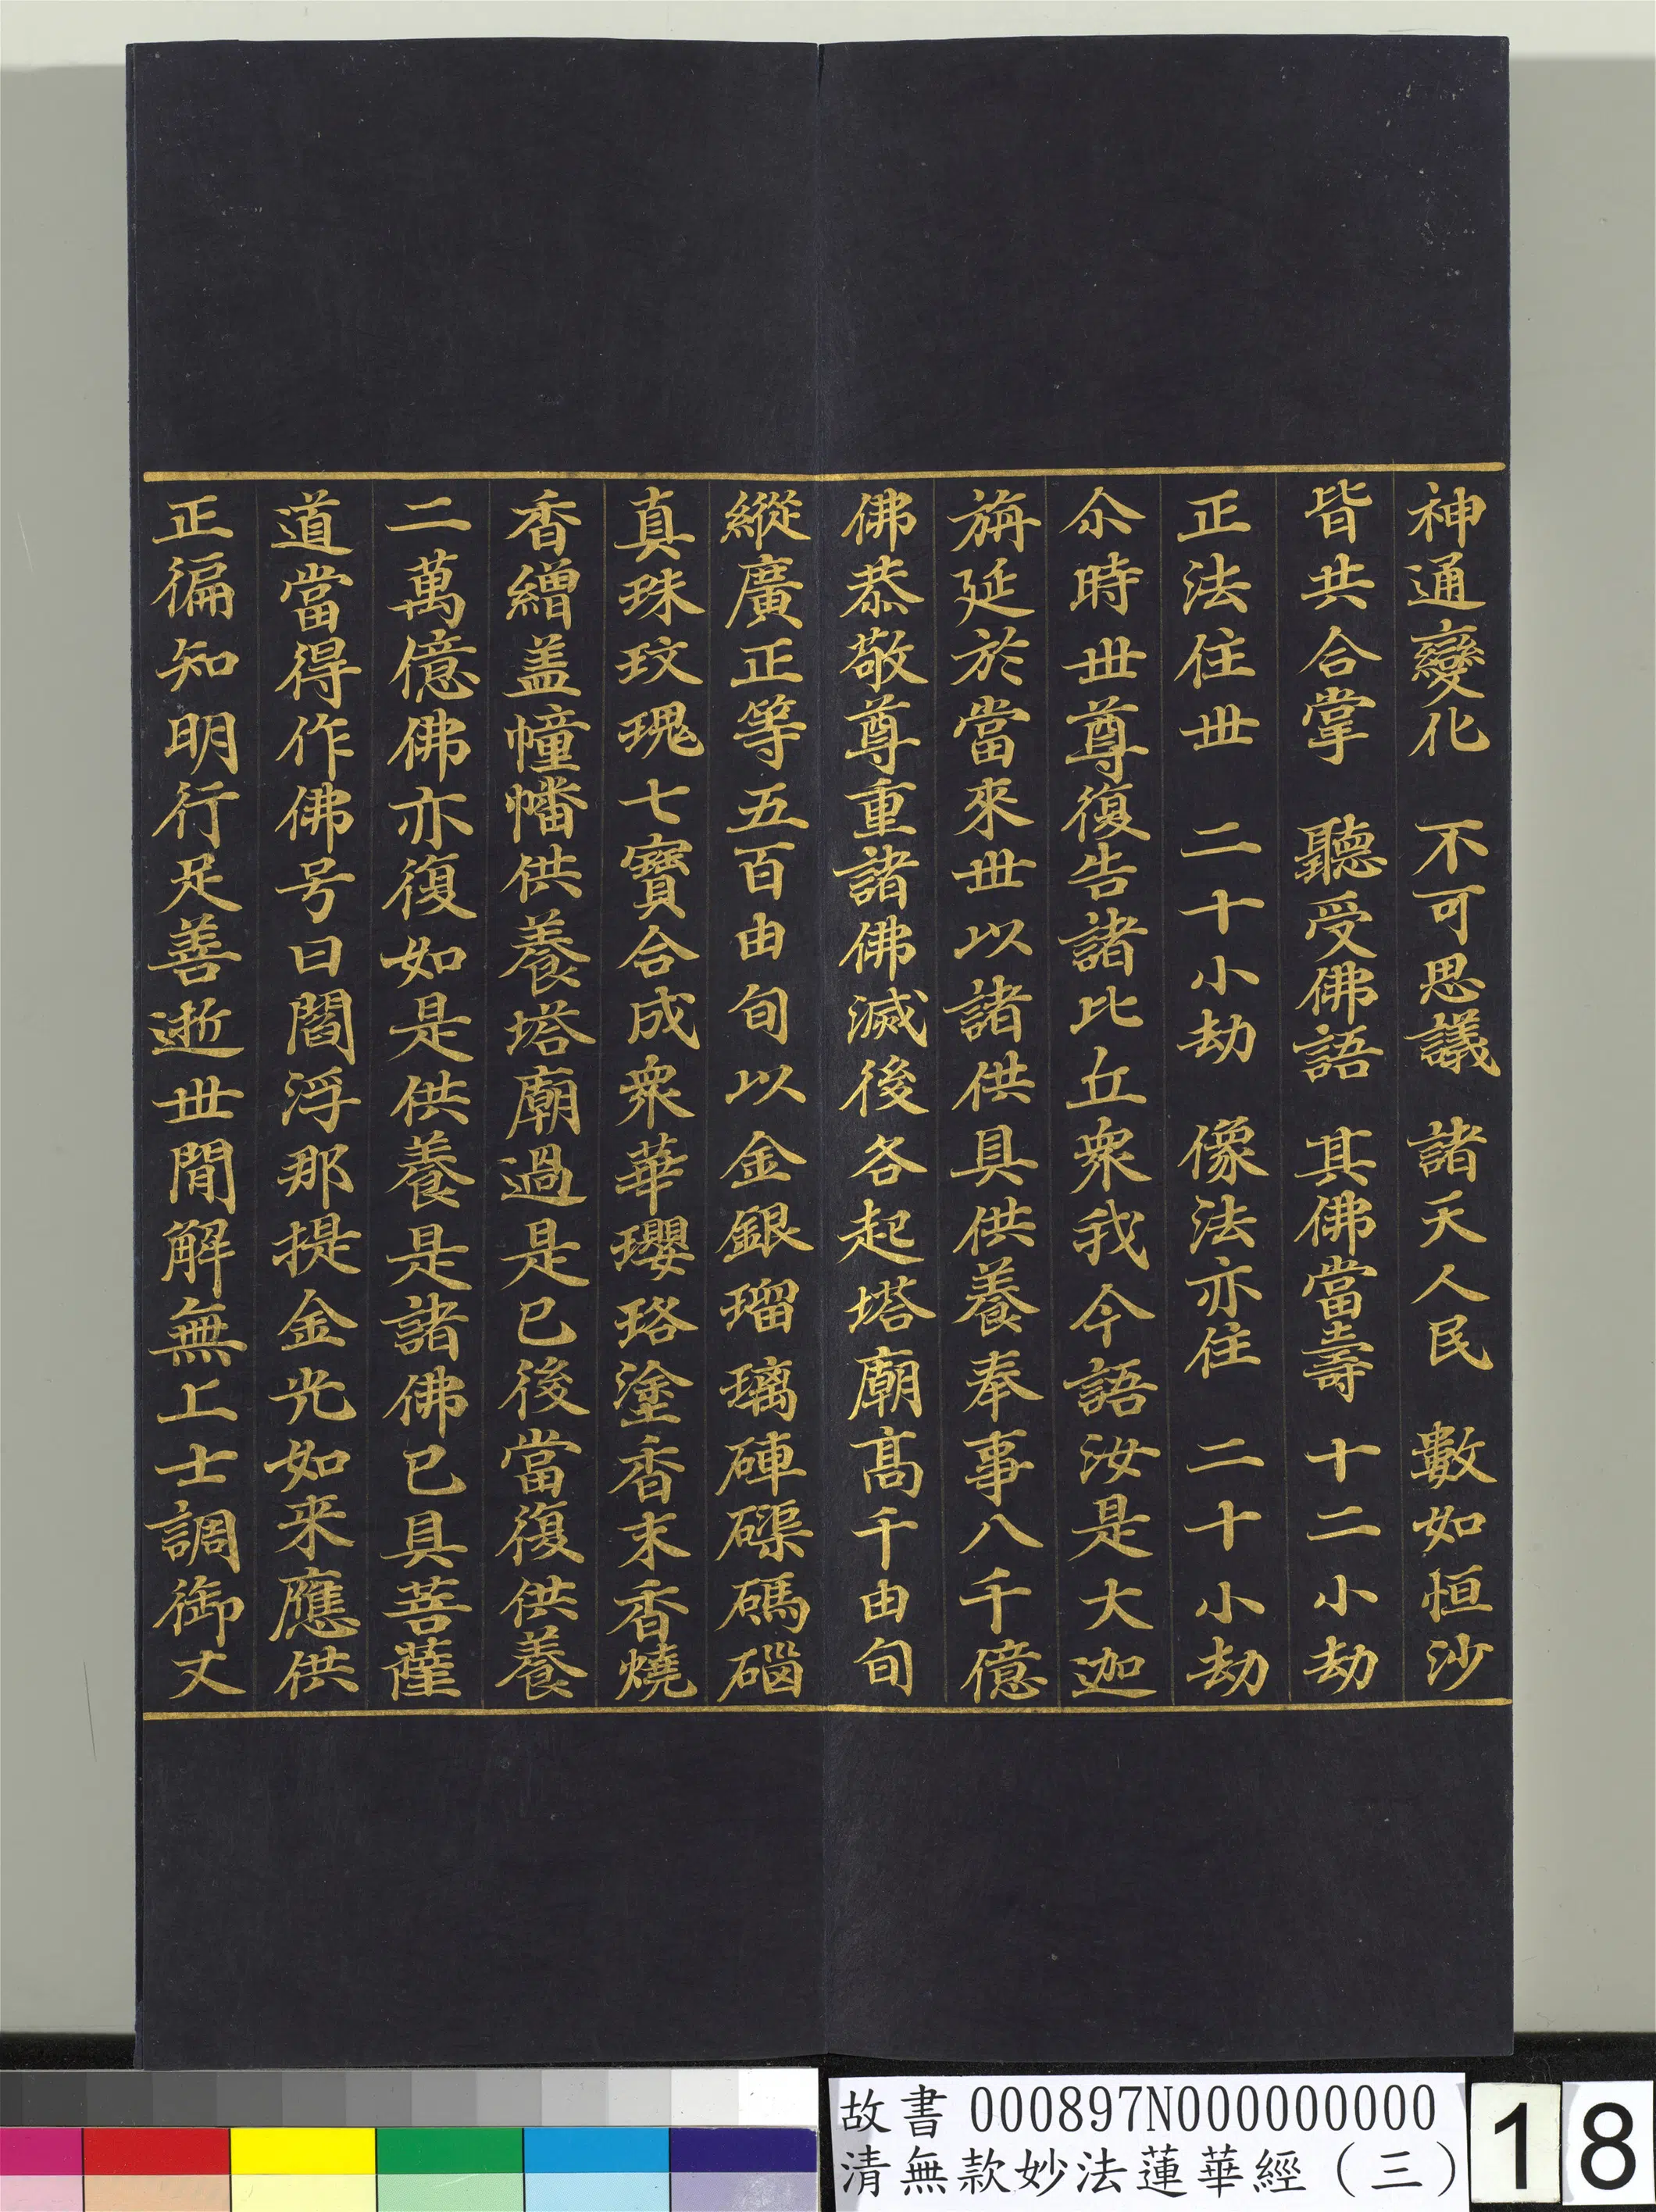 神通變化　不可思議　諸天人民　數如恒沙
皆共合掌　聽受佛語　其佛當壽　十二小劫
正法住丗　二十小劫　像法亦住　二十小劫
尒時丗尊復告諸比丘衆我今語汝是大迦
旃延於當來丗以諸供具供養奉事八千億
佛恭敬尊重諸佛滅後各起塔廟髙千由旬
縱廣正等五百由旬以金銀瑠璃硨磲碼碯
真珠玫瑰七寶合成衆華瓔珞塗香末香燒
香繒盖幢幡供養塔廟過是已後當復供養
二萬億佛亦復如是供養是諸佛已具菩薩
道當得作佛号曰閻浮那提金光如来應供
正徧知明行足善逝丗閒解無上士調御丈
故書 000897N000000000
清無款妙法蓮華經（三）
18